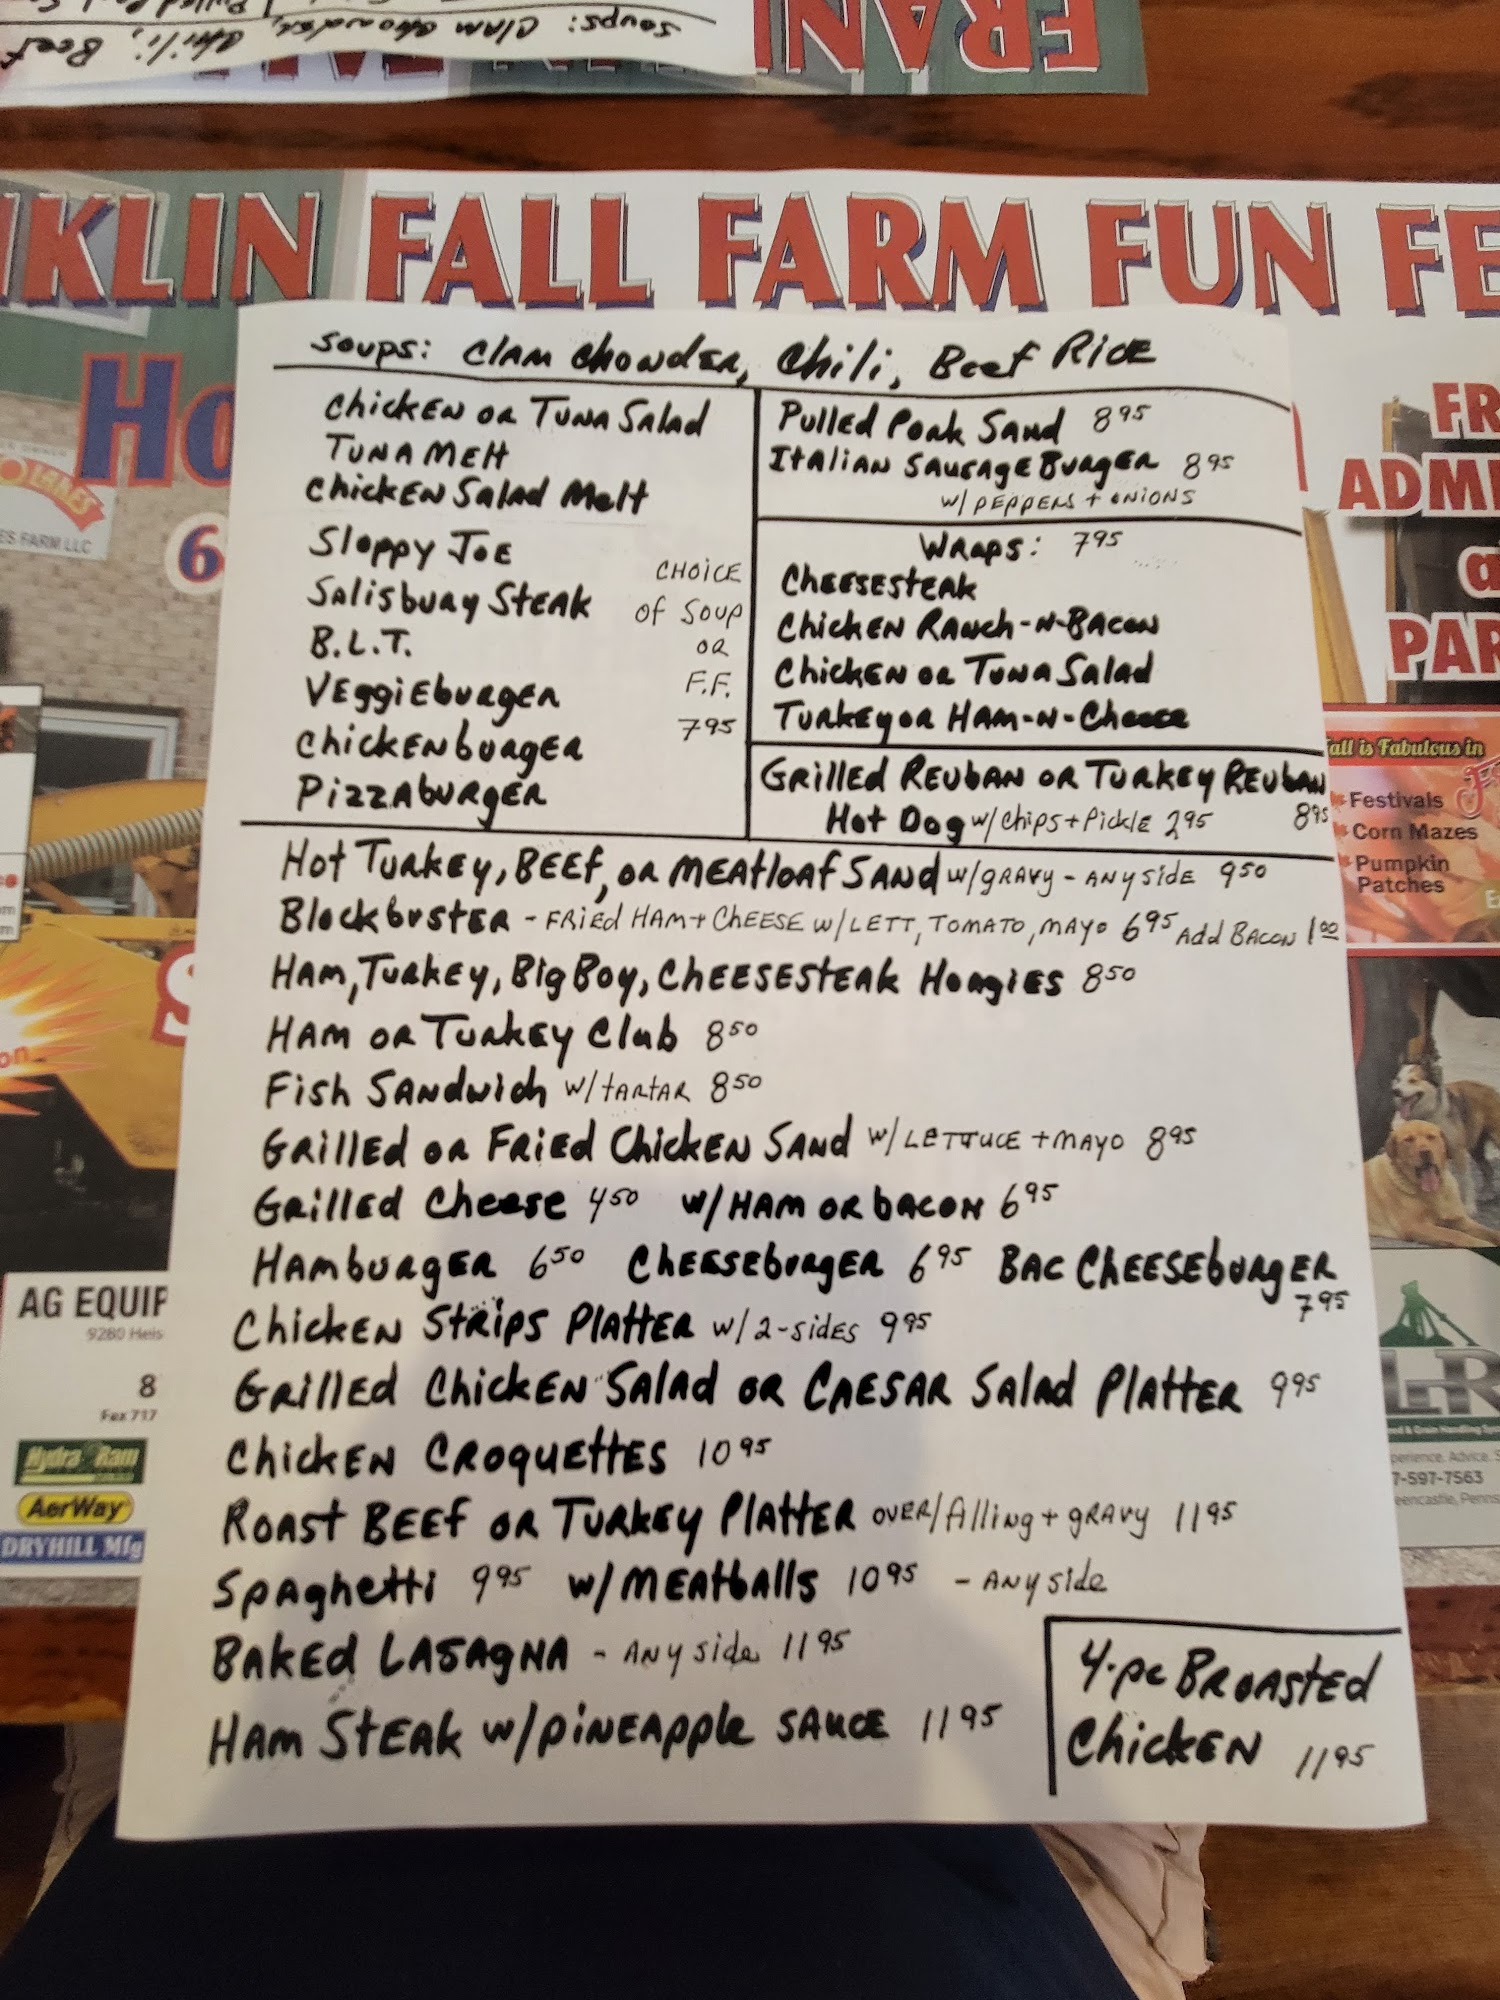 Soups: Clam Chowder, Chili, Beef
FRAN
KLIN FALL FARM FUN FE
Ho
6
ES FARM LLC
FR
ADMI
a
PAR
Soups: Clam Chowder, Chili, Beef Rice
Chicken or Tuna Salad
Tuna Melt
Chicken Salad Melt
Sloppy Joe
Salisbury Steak
B.L.T.
Veggieburger
Chickenburger
Pizzaburger
CHOICE
of Soup
or
F.F.
7 95
Pulled Pork Sand 8 95
Italian Sausage Burger 8 95
w/ peppers + onions
Wraps: 7 95
Cheesesteak
Chicken Ranch-N-Bacon
Chicken or Tuna Salad
Turkey or Ham-N-Cheese
Grilled Reuban or Turkey Reuban
8 95
Hot Dog w/ chips + Pickle 2 95
Hot Turkey, Beef, or Meatloaf Sand w/ gravy - any side 9 50
Blockbuster - Fried Ham + Cheese w/ Lett, Tomato, Mayo 6 95 Add Bacon 1 00
Ham, Turkey, Big Boy, Cheesesteak Hoagies 8 50
Ham or Turkey Club 8 50
Fish Sandwich w/ tartar 8 50
Grilled or Fried Chicken Sand w/ Lettuce + Mayo 8 95
Grilled Cheese 4 50 w/ Ham or bacon 6 95
Hamburger 6 50 Cheeseburger 6 95 Bac Cheeseburger
7 95
Chicken Strips Platter w/ 2-sides 9 95
Grilled Chicken Salad or Caesar Salad Platter 9 95
Chicken Croquettes 10 95
Roast Beef or Turkey Platter over/filling + gravy 11 95
Spaghetti 9 95 w/ Meatballs 10 95 - Any side
Baked Lasagna - Any side 11 95
Ham Steak w/ pineapple sauce 11 95
4-pc Broasted
Chicken 11 95
all is Fabulous in
Festivals
Corn Mazes
Pumpkin
Patches
AG EQUIP
8
Fax 717
Hydra Ram
AerWay
DRYHILL Mfg
7-597-7563